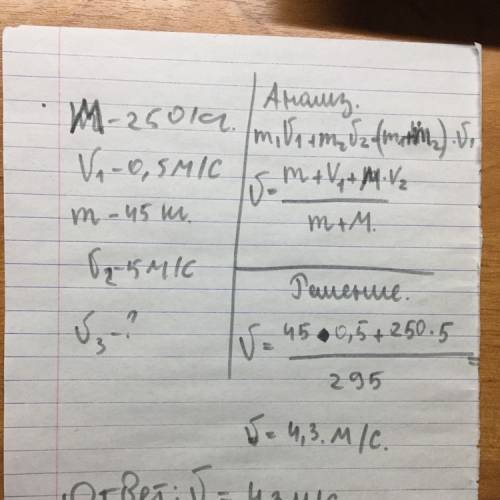 M - 250 кг.
V₁ - 0,5 м/с
m - 45 кг.
V₂ - 5 м/с
V₃ - ?
Анализ.
m₁V₁ + m₂V₂ = (m₁ + m₂) · V₁
V = m + V₁ + M · V₂
m + M.
Решение.
V = 45 · 0,5 + 250 · 5 =
295
V = 4,3 м/с.
Ответ: V = 4,3 м/с